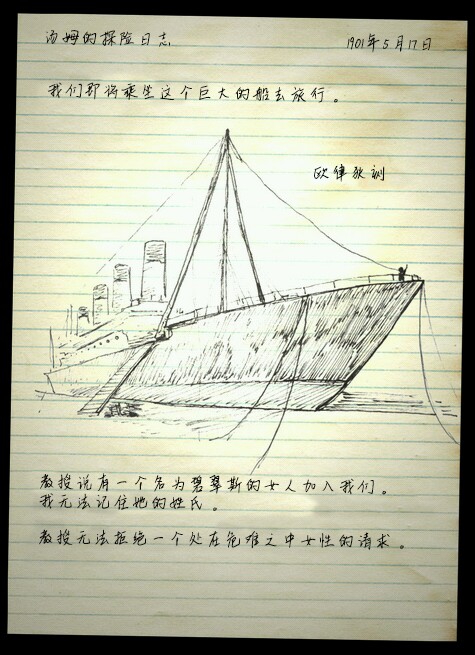 汤姆的探险日志
1901年5月17日
我们即将乘坐这个巨大的船去旅行。
欧律狄刻
教授说有一个名为碧翠斯的女人加入我们。
我无法记住她的姓氏。
教授无法拒绝一个处在危难之中女性的请求。